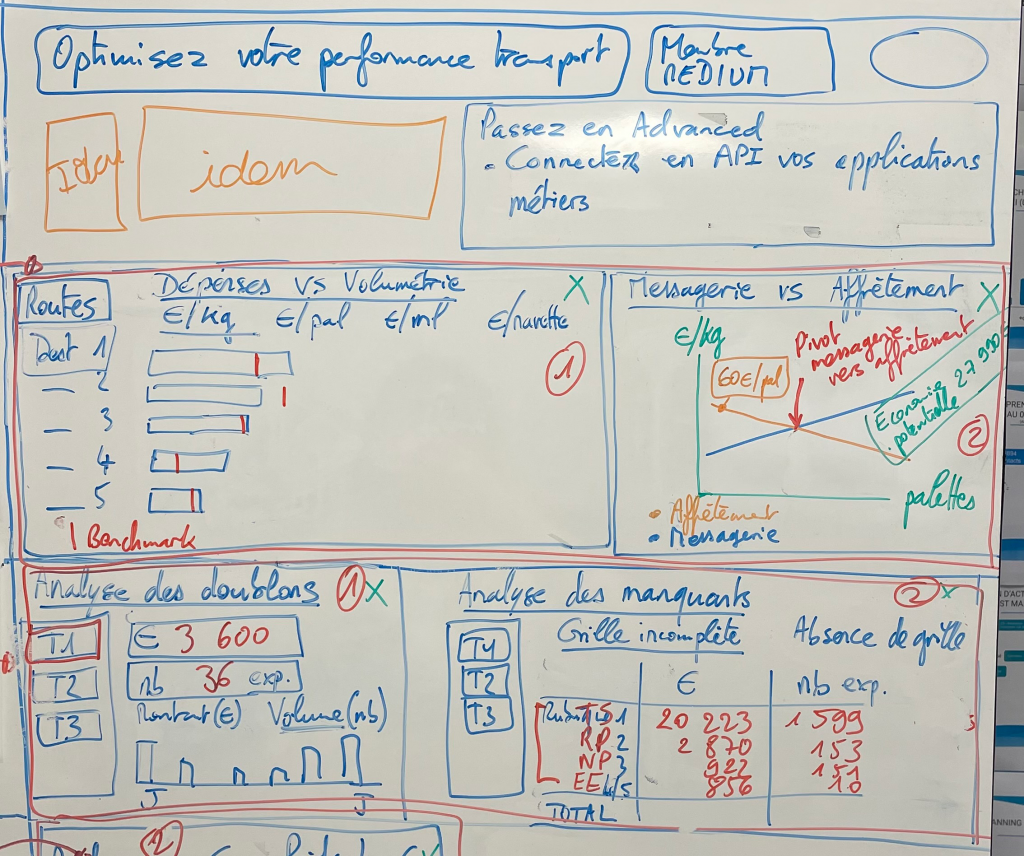 Optimisez votre performance transport
Membre
MEDIUM
idem
Passez en Advanced
• Connectez en API vos applications
métiers
Routes
Dépenses vs Volumétrie
X
€/kg €/pal €/ml €/navette
Dest 1
— 2
— 3
— 4
— 5
1
| Benchmark
Messagerie vs Affrètement
X
€/kg
60€/pal
Pivot
messagerie
vers affrètement
Économie 27 990
potentielle
2
palettes
• Affrètement
• Messagerie
Analyse des doublons
1
X
T1
T2
T3
€ 3 600
nb 36 exp.
Montant(€) Volume(nb)
J J
Analyse des manquants
2
x
Grille incomplète Absence de grille
T4
T2
T3
€ nb exp.
1 20 223 1 599
RP 2 2 870 153
NP 3 922 151
EE 4/5 856 10
TOTAL
2